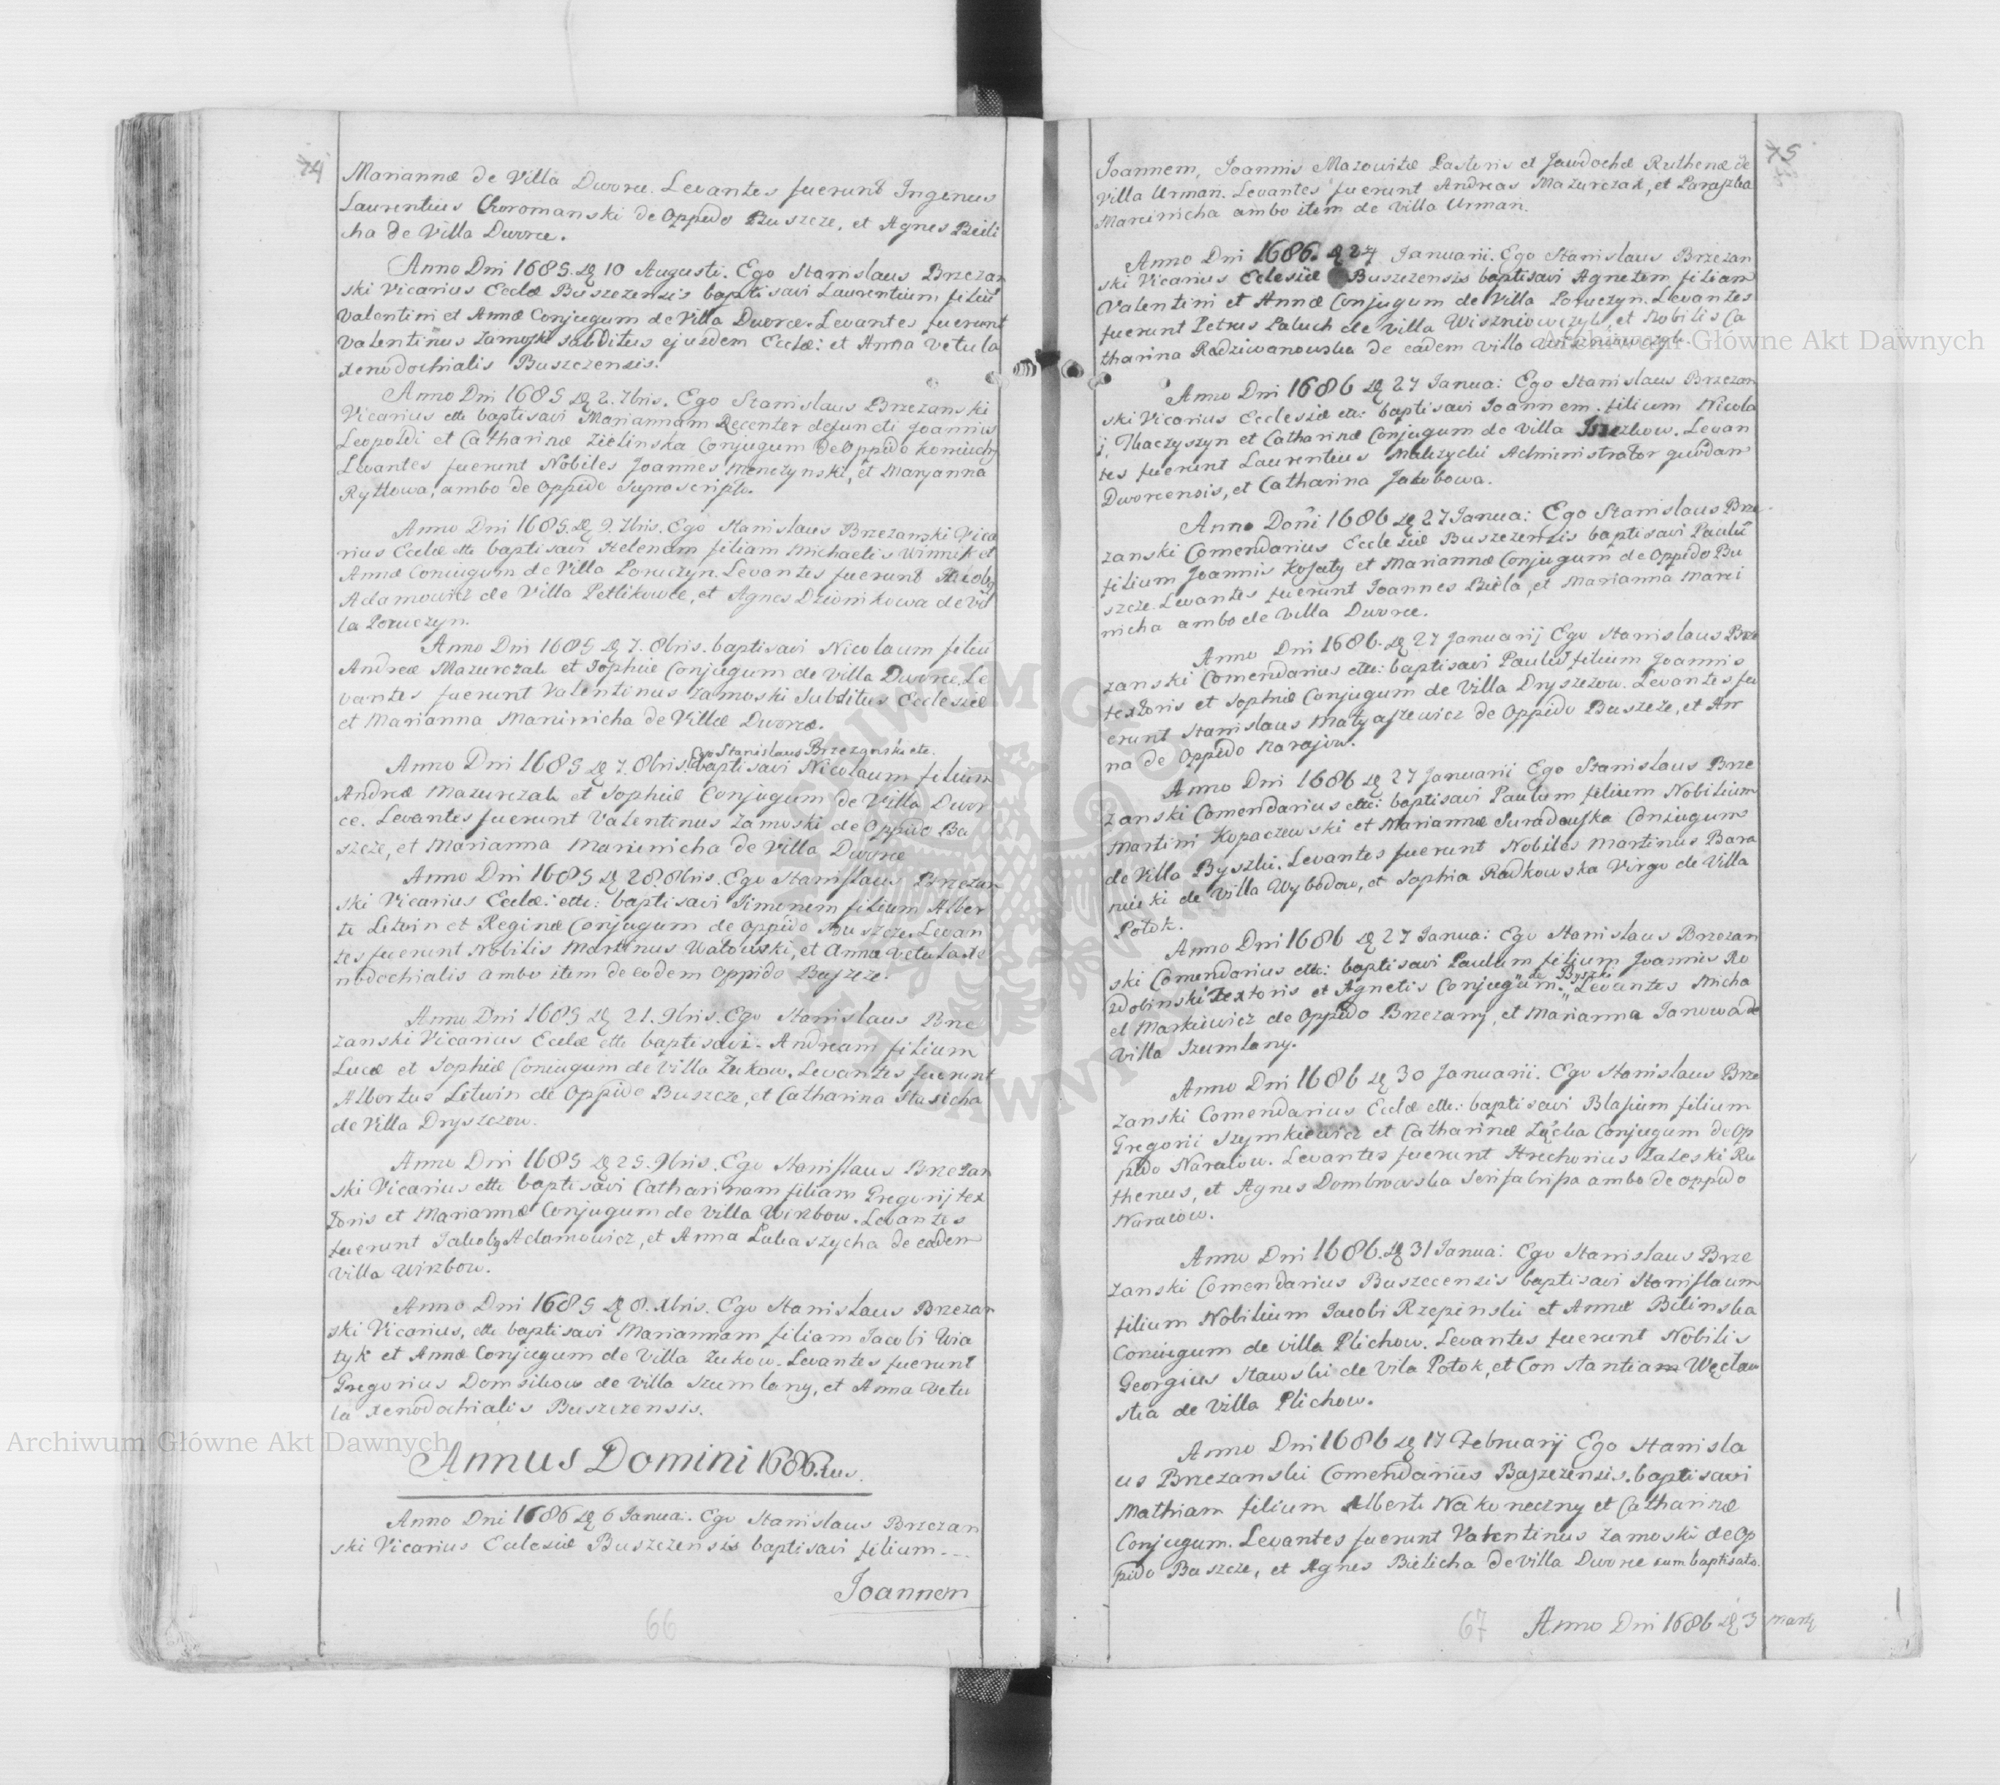 74
Mariannæ de Villa Dworce. Levantes fuerunt Ingenuus
Laurentius Choromanski de Oppido Buszcze, et Agnes Bieli
cha de Villa Dworce.
Anno Dni 1685. D 10 Augusti. Ego Stanislaus Brzezan
ski Vicarius Ecclæ Buszczensis baptisavi Laurentium filiū
Valentini et Annæ Conjugum de Villa Dworce. Levantes fuerunt
Valentinus Zamoyski subditus ejusdem Ecclæ: et Anna Vetula
xenodochialis Buszczensis.
Anno Dni 1685 D 2. 7bris. Ego Stanislaus Brzezanski
Vicarius ettc baptisavi Mariannam Recenter defuncti Joannis
Leopoldi et Catharinæ Zielinska Conjugum de Oppido Koniuchy
Levantes fuerunt Nobiles Joannes Menczynski, et Maryanna
Rytlowa, ambo de Oppido suprascripto.
Anno Dni 1685. D 9. 7bris. Ego Stanislaus Brzezanski Vica
rius Ecclæ ettc baptisavi Helenam filiam Michaelis Winnik et
Annæ Coniugum de Villa Poruczyn. Levantes fuerunt Jacobg
Adamowicz de Villa Petlikowce, et Agnes Dzionikowa de Vil
la Poruczyn.
Anno Dni 1685 D 7. 8bris. baptisavi Nicolaum filiū
Andreæ Mazurczak et Sophiæ Conjugum de Villa Dworce. Le
vantes fuerunt Valentinus Zamoski Subditus Ecclesiæ
et Marianna Marcinicha de Villæ Dworce.
Ego Stanislaus Brzezanski etc.
Anno Dni 1685 D 7. 8bris. baptisavi Nicolaum filium
Andreæ Mazurczak et Sophiæ Conjugum de Villa Dwor
ce. Levantes fuerunt Valentinus Zamoski de Oppido Bu
szcze, et Marianna Marcinicha de Villa Dworce
Anno Dni 1685 D 28. 8bris. Ego Stanislaus Brzezan
ski Vicarius Ecclæ: ettc: baptisavi Simonem filium Alber
ti Litwin et Reginæ Conjugum de Oppido Buszcze. Levan
tes fuerunt Nobilis Martinus Watowski, et Anna Vetula xe
nodochialis ambo item de eodem Oppido Buszcze.
Anno Dni 1685 D 21. 9bris. Ego Stanislaus Brze
zanski Vicarius Ecclæ ettc baptisavi. Andream filium
Lucæ et Sophiæ Coniugum de Villa Żukow. Levantes fuerunt
Albertus Litwin de Oppido Buszcze, et Catharina Stasicha
de Villa Dryszczow.
Anno Dni 1685 D 25. 9bris. Ego Stanislaus Brzezan
ski Vicarius ettc baptisavi Catharinam filiam Gregorij tex
toris et Mariannæ Conjugum de Villa Wirzbow. Levantes
fuerunt Jakobg Adamowicz, et Anna Lukaszycha de eadem
Villa Wirzbow.
Anno Dni 1685 D 8. Xbris. Ego Stanislaus Brzezan
ski Vicarius, ettc baptisavi Mariannam filiam Jacobi Wia
tyk et Annæ Conjugum de Villa Żukow. Levantes fuerunt
Gregorius Domsikow de Villa Szumlany, et Anna Vetu
la xenodochialis Buszczensis.
Annus Domini 1686.tus.
Anno Dni 1686 D 6 Janua: Ego Stanislaus Brzezan
ski Vicarius Ecclesiæ Buszczensis baptisavi filium
Joannem
66
75
Joannem, Joannis Mazowitæ Pastoris et Jawdochæ Ruthenæ de
Villa Urman. Levantes fuerunt Andreas Mazurczak, et Paraszka
Marcinicha ambo item de Villa Urman.
Anno Dni 1686. D 27 Januarii. Ego Stanislaus Brzezan
ski Vicarius Eclesiæ Buszczensis baptisavi Agnetem filiam
Valentini et Annæ Conjugum de Villa Poruczyn. Levantes
fuerunt Petrus Paluch de Villa Wiszniowczyk, et Nobilis Ca
tharina Radziwanowska de eadem Villa Wiszniowczyk.
Anno Dni 1686 D 27 Janua: Ego Stanislaus Brzezan
ski Vicarius Ecclesiæ etc: baptisavi Joannem filium Nicola
i, Tkaczyszyn et Catharinæ Conjugum de Villa Levan
tes fuerunt Laurentius Malczycki Administrator quodan
Dworcensis, et Catharina Jakobowa.
Anno Doñi 1686 D 27 Janua: Ego Stanislaus Brze
zanski Comendarius Ecclesiæ Buszczensis baptisavi Paulū
filium Joannis Kosaty et Mariannæ Conjugum de Oppido Bu
szcze. Levantes fuerunt Joannes Biela, et Marianna Marci
nicha ambo de Villa Dworce.
Anno Dni 1686. D 27 Januarij Ego Stanislaus Brze
zanski Comendarius ettc: baptisavi Paulū filium Joannis
textoris et Sophiæ Conjugum de Villa Dryszczow. Levantes fu
erunt Stanislaus Matyaszewicz de Oppido Buszcze, et An
na de Oppido Narajow.
Anno Dni 1686 D 27 Januarii Ego Stanislaus Brze
zanski Comendarius ettc: baptisavi Paulum filium Nobilium
Martini Kopaczewski et Mariannæ Suradowska Coniugum
de Villa Byszki. Levantes fuerunt Nobiles Martinus Bara
niecki de Villa Wybodow, et Sophia Radkowska Virgo de Villa
Potok.
Anno Dni 1686 D 27 Janua: Ego Stanislaus Brzezan
ski Comendarius ettc: baptisavi Paulum filium Joannis Ro
zdolinski Textoris et Agnetis Conjugum. de Byszki Levantes Micha
el Markiewicz de Oppido Brzezany, et Marianna Janowa de
Villa Szumlany.
Anno Dni 1686 D 30 Januarii. Ego Stanislaus Brze
zanski Comendarius Ecclæ ettc: baptisavi Blasium filium
Gregorii Szymkiewicz et Catharinæ Zięcka Conjugum de Op
pido Naraiow. Levantes fuerunt Hrechorius Zaleski Ru
thenus, et Agnes Dombrowska Serifabrissa ambo de oppido
Naraiow.
Anno Dni 1686. D 31 Janua: Ego Stanislaus Brze
zanski Comendarius Buszcecensis baptisavi Stanislaum
filium Nobilium Jacobi Rzepinski et Annæ Bilinska
Coniugum de villa Plichow. Levantes fuerunt Nobilis
Georgius Stawski de Vila Potok, et Constantiam Węcław
ska de Villa Plichow.
Anno Dni 1686 D 17 Februarij Ego Stanisla
us Brzezanski Comendarius Buszczensis. baptisavi
Mathiam filium Alberti Nakoneczny et Catharinæ
Conjugum. Levantes fuerunt Valentinus Zamoski de Op
pido Buszcze, et Agnes Bielicha de Villa Dworce cum baptisato.
67
Anno Dni 1686 D 3 Martij
Archiwum Główne Akt Dawnych
Archiwum Główne Akt Dawnych